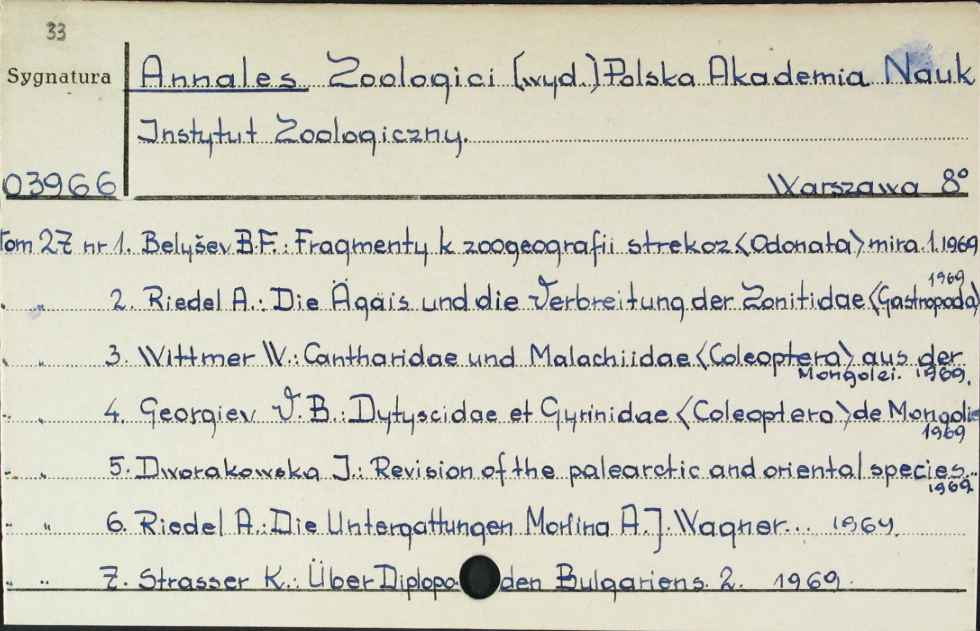 33
Sygnatura Annales Zoologici [wyd.] Polska Akademia Nauk
Instytut Zoologiczny.
03966 Warszawa 8°
Tom 27 nr 1. Belyšev B.F.: Fragmenty k zoogeografii strekoz <Odonata> mira.1.1969
" " 2. Riedel A.: Die Ägäis und die Verbreitung der Zonitidae <Gastropoda> 1969
" " 3. Wittmer W.: Cantharidae und Malachiidae <Coleoptera> aus der
Mongolei. 1969.
" " 4. Georgiev V.B.: Dytyscidae et Gyrinidae <Coleoptera> de Mongolie
1969
" " 5. Dworakowska J.: Revision of the palearctic and oriental species..
1969
" " 6. Riedel A.: Die Untergattungen Morlina A.J. Wagner... 1969.
" " 7. Strasser K.: Über Diplopoden Bulgariens. 2. 1969.